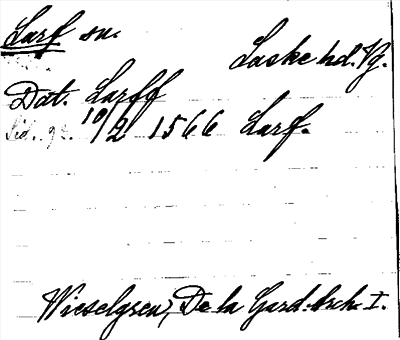 Larf sn.
Laske hd. Vg.
Dat. Larff
10/2 1566 Larf.
Wieselgren, De la Gard. Ark. I.